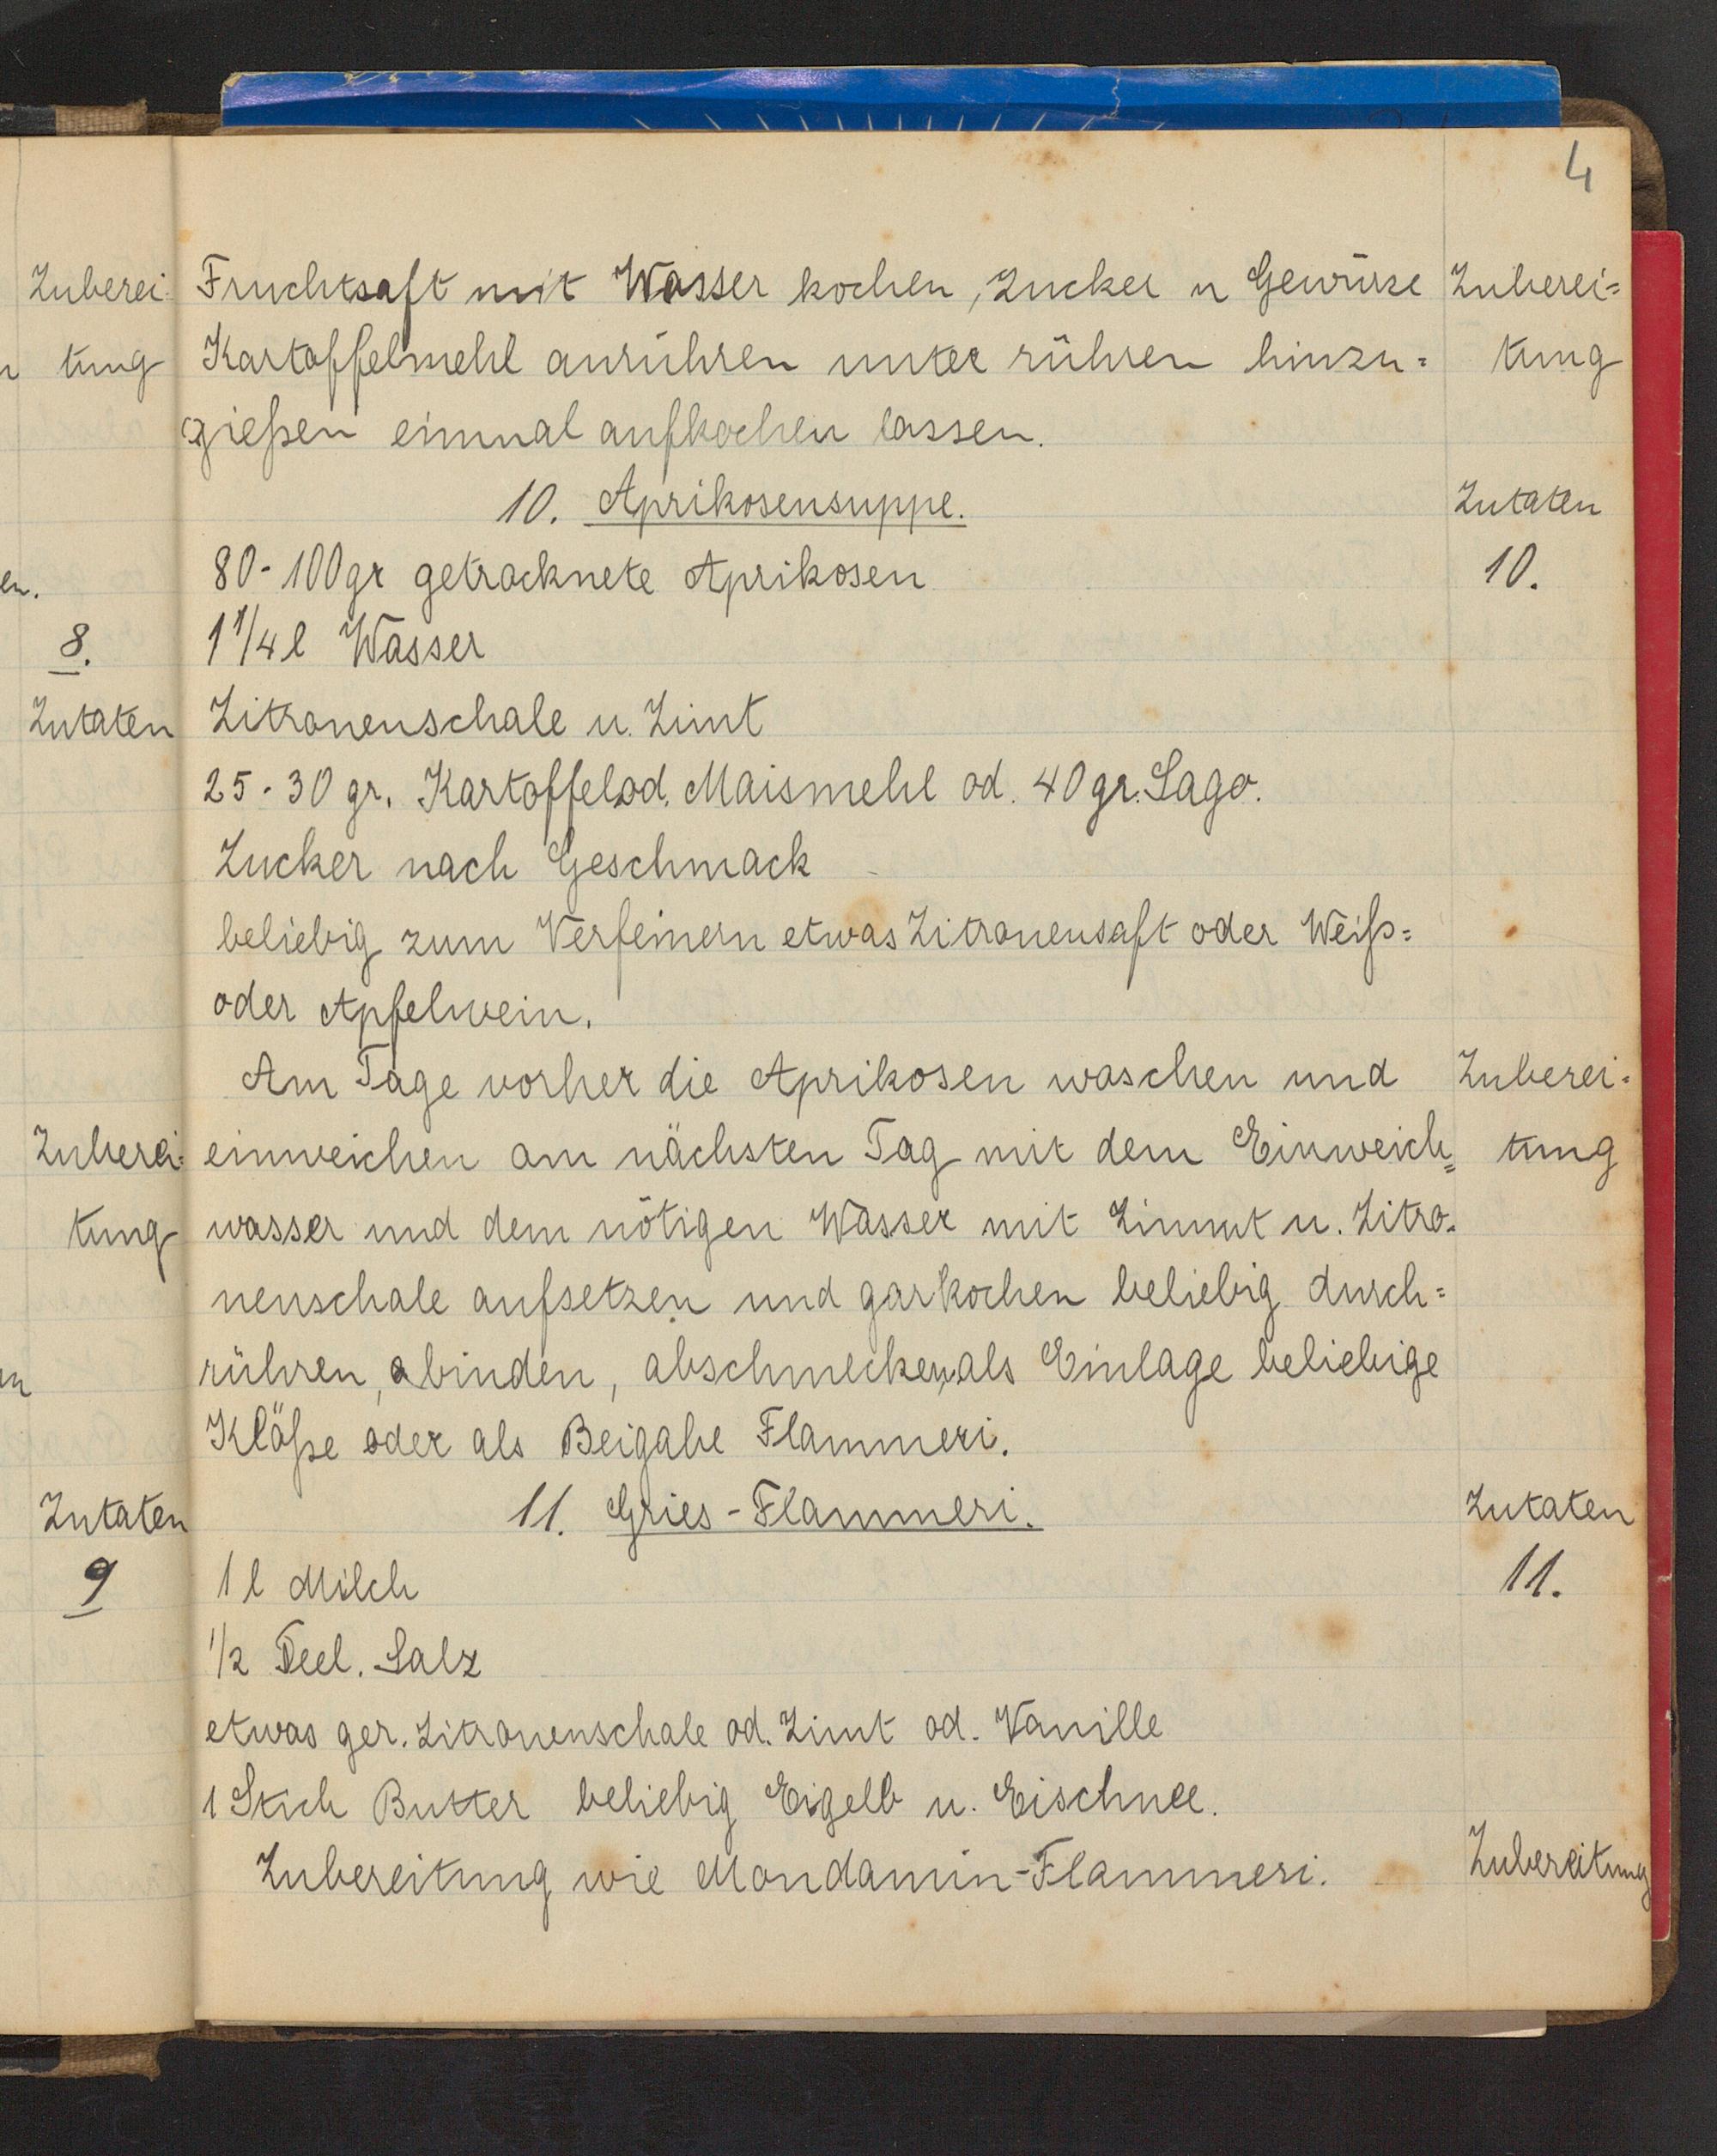 4
Zuberei= Fruchtsaft mit Wasser kochen, Zucker u Gewürze Zuberei=
tung Kartoffelmehl anrühren unter rühren hinzu= tung
gießen einmal aufkochen lassen.
10. Aprikosensuppe. Zutaten
en. 80-100gr getrocknete Aprikosen 10.
8. 1 1/4 l Wasser
Zutaten Zitronenschale u. Zimt
25-30 gr. Kartoffel od. Maismehl od. 40 gr. Sago.
Zucker nach Geschmack
beliebig zum Verfeinern etwas Zitronensaft oder Weiß=
oder Apfelwein.
Am Tage vorher die Aprikosen waschen und Zuberei=
Zuberei= einweichen am nächsten Tag mit dem Einweich= tung
tung wasser und dem nötigen Wasser mit Zimmt u. Zitro=
nenschale aufsetzen und garkochen beliebig durch=
rühren, abinden, abschmecken, als Einlage beliebige
Klöße oder als Beigabe Flammeri.
Zutaten 11. Gries-Flammeri. Zutaten
9 1 l Milch 11.
1/2 Teel. Salz
etwas ger. Zitronenschale od. Zimt od. Vanille
1 Stich Butter beliebig Eigelb u. Eischnee.
Zubereitung wie Mondamin-Flammeri. Zubereitung